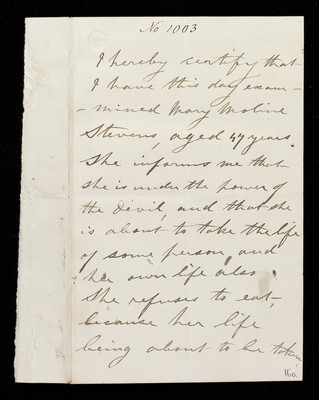 No 1003
I hereby certify that
I have this day exam-
-mined Mary Moline
Stevens, aged 47 years.
She informs me that
she is under the power of
the Devil, and that she
is about to take the life
of some person, and
her own life also.
She refuses to eat,
because her life
being about to be taken
160.